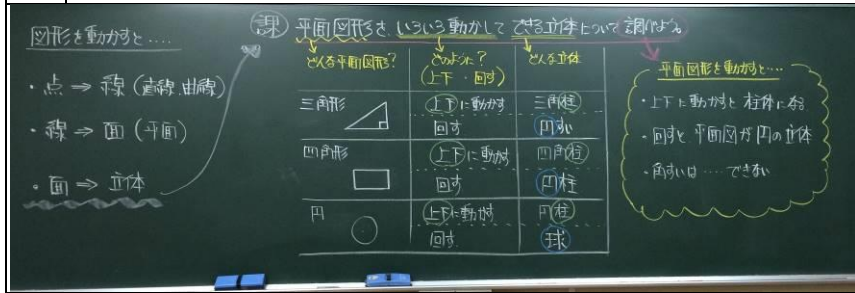 図形を動かすと.....
・点 ⇒ 線 (直線、曲線)
・線 ⇒ 面 (平面)
・面 ⇒ 立体
課 平面図形を、いろいろ動かして できる立体について 調べよう。
どんな平面図形? どのように? どんな立体
(上下・回す)
三角形 上下に動かす 三角柱
回す 円すい
四角形 上下に動かす 四角柱
回す 円柱
円 上下に動かす 円柱
回す 球
平面図形を動かすと....
・上下に動かすと 柱体になる
・回すと 平面図が円の立体
・角すいは ..... できない